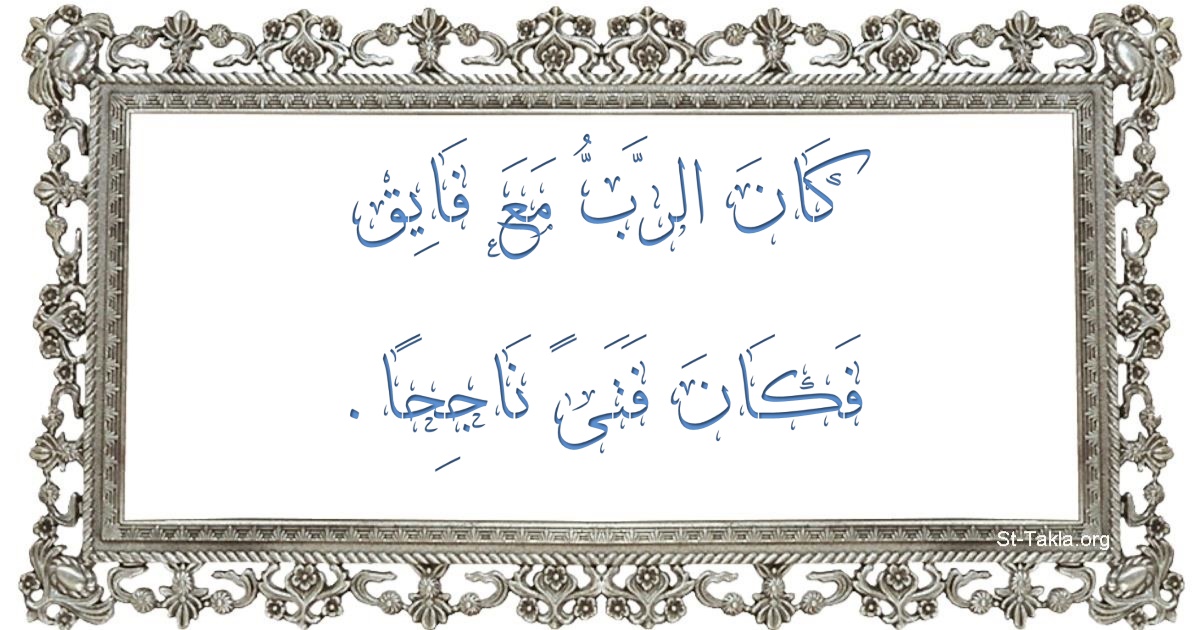 كَانَ الرَّبُّ مَعَ فَايِقْ
فَكَانَ فَتَىً نَاجِحًا .
St-Takla.org